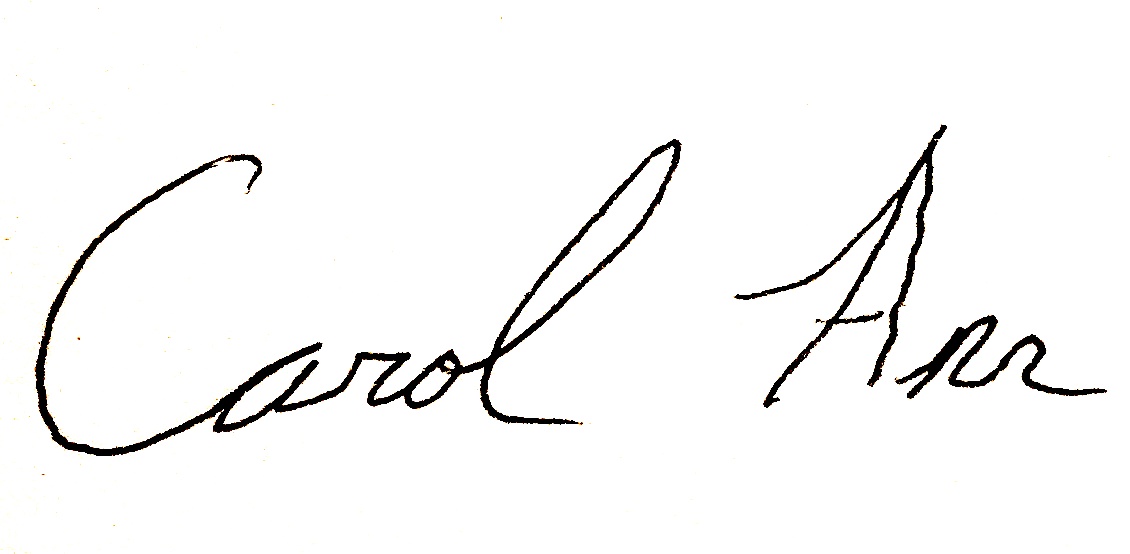 Carol Ann